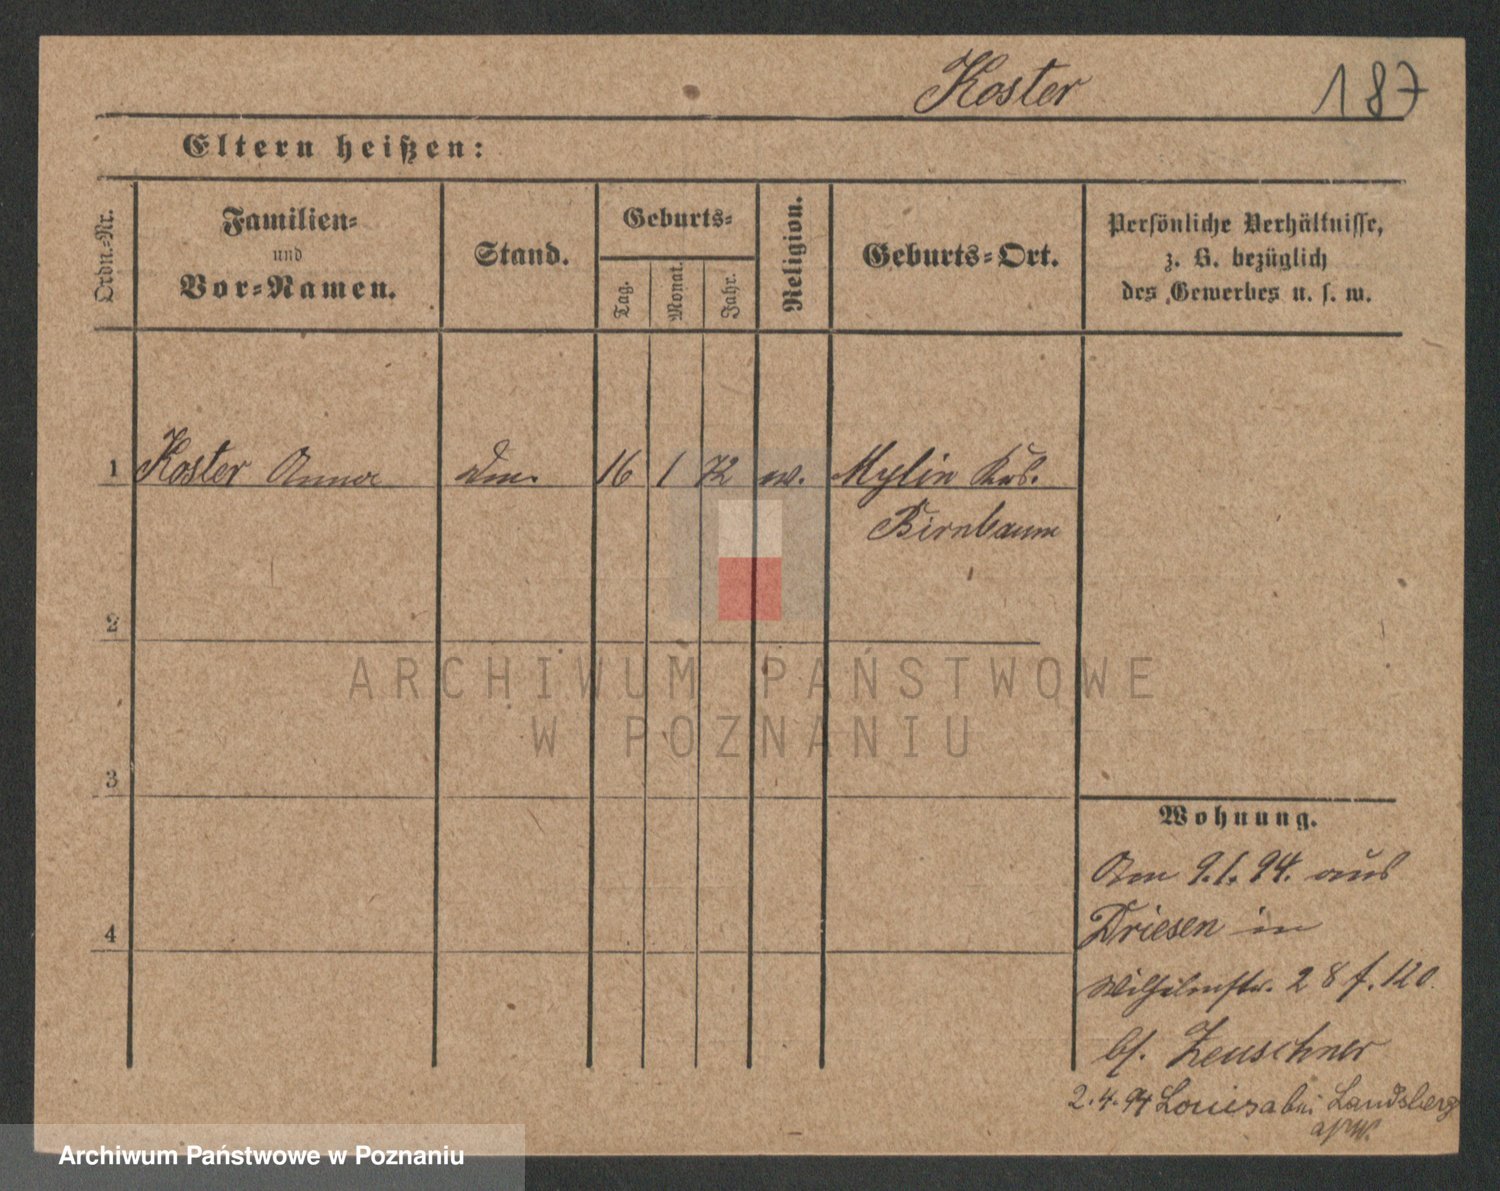 Koster 187
Eltern heißen:
Ordn.-Nr.
Familien-
und
Vor-Namen.
Stand.
Geburts-
Tag.
Monat.
Jahr.
Religion.
Geburts-Ort.
Persönliche Verhältnisse,
z. B. bezüglich
des Gewerbes u. s. w.
1 Koster Anna 16 1 72 ev. Mylin Krs.
Birnbaum
2
3
4
Wohnung.
Am 9.1.94. aus
Driesen in
Wilhelmstr. 28 f. 120.
bf. Zeuschner
2.4.94 Louisa bei Landsberg
a/W.
ARCHIWUM PAŃSTWOWE
W POZNANIU
Archiwum Państwowe w Poznaniu